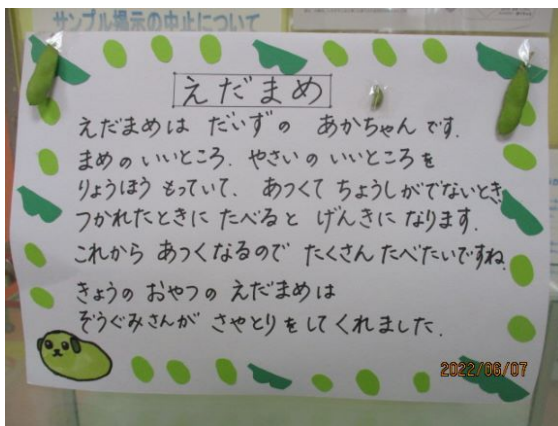 サンプル掲示の中止について
えだまめ
えだまめは だいずの あかちゃん です.
まめの いいところ. やさいの いいところを
りょうほう もっていて. あつくて ちょうしがでないとき.
つかれたときに たべると げんきに なります.
これから あつくなるので たくさん たべたいですね
きょうの おやつの えだまめは
ぞうぐみさんが さやとりを してくれました.
2022/06/07